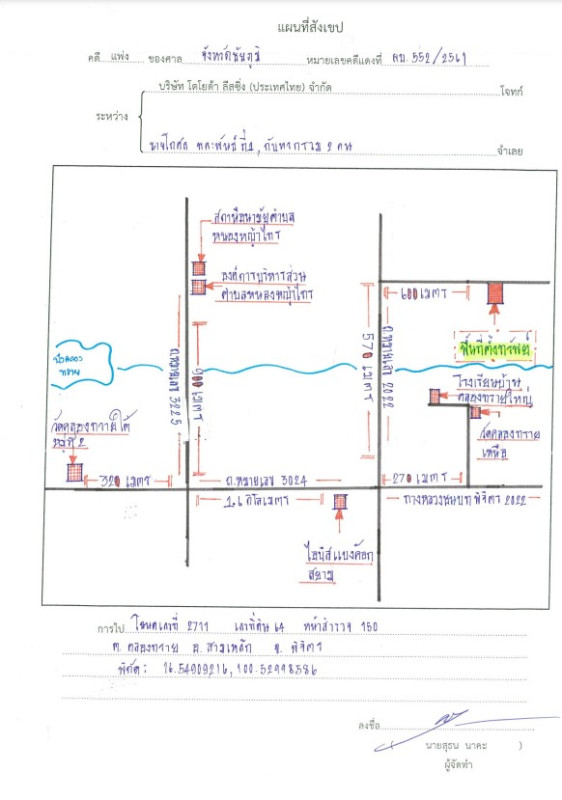 แผนที่สังเขป
คดี แพ่ง ของศาล จังหวัดชัยภูมิ หมายเลขคดีแดงที่ ผบ. 552/2561
บริษัท โตโยต้า ลีสซิ่ง (ประเทศไทย) จำกัด โจทก์
ระหว่าง
ที่1, กับพวกรวม 2 คน จำเลย
สถานีอนามัยตำบล
หนองหญ้าไทร
องค์การบริหารส่วน
ตำบลหนองหญ้าไทร
600 เมตร
พื้นที่ตั้งทรัพย์
ถ.หมายเลข 3225
900 เมตร
570 เมตร
ถ.หมายเลข 2022
โรงเรียนบ้าน
คลองทรายใหญ่
วัดคลองทราย
เหนือ
วัดคลองทรายใต้
หมู่ที่ 2
320 เมตร
ถ.หมายเลข 3024
270 เมตร
1.1 กิโลเมตร
ทางหลวงชนบท พิจิตร 2022
สยาม
การไป โฉนดเลขที่ 2711 เลขที่ดิน 64 หน้าสำรวจ 150
ต. คลองทราย อ. สากเหล็ก จ. พิจิตร
พิกัด : 16.54909216, 100.52998586
ลงชื่อ
( นายสุธน นาคะ )
ผู้จัดทำ